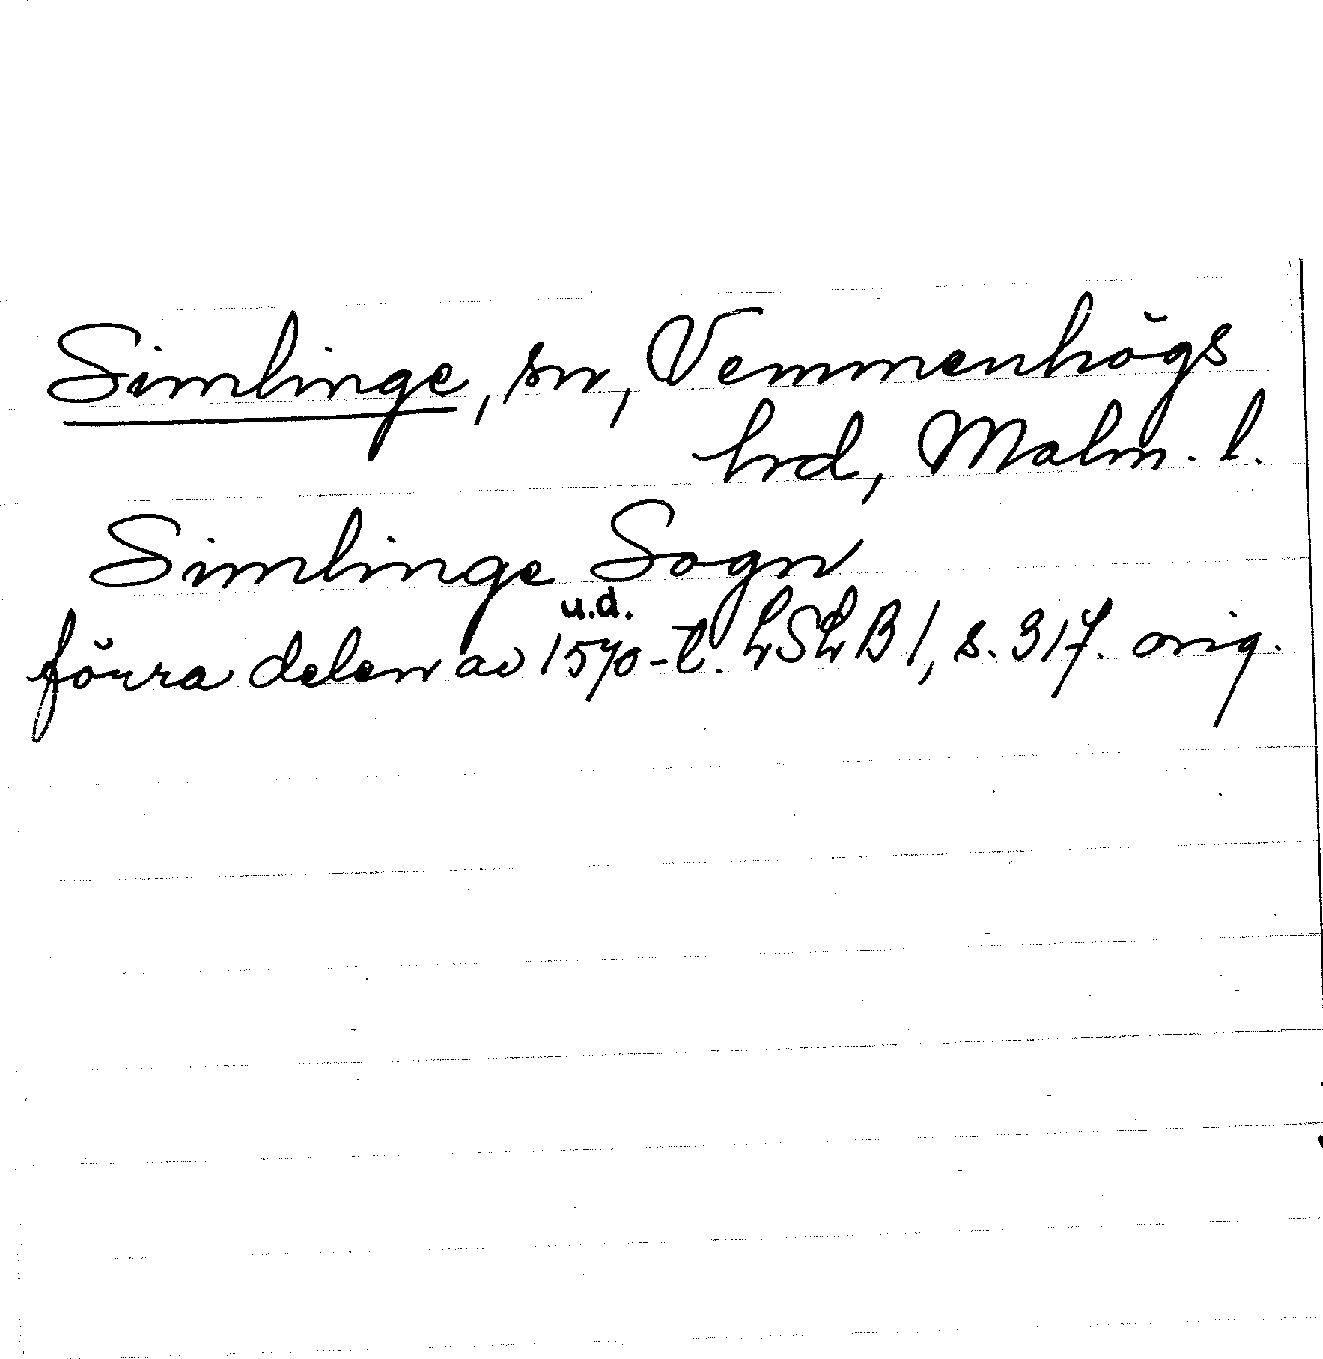 Simlinge, sn, Vemmenhögs
hrd, Malm. l.
Simlinge Sogn
u.d.
förra delen av 1570-t. LSLB 1, s. 317. orig.